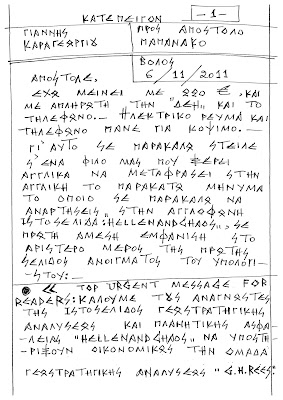 ΚΑΤΕΠΕΙΓΟΝ -1-
ΓΙΑΝΝΗΣ
ΚΑΡΑΓΕΩΡΓΙΟΥ
ΠΡΟΣ ΑΠΟΣΤΟΛΟ
ΜΑΜΑΝΑΚΟ
ΒΟΛΟΣ
6/11/2011
ΑΠΟΣΤΟΛΕ,
ΕΧΩ ΜΕΙΝΕΙ ΜΕ 220 €, ΚΑΙ
ΜΕ ΑΠΛΗΡΩΤΗ ΤΗΝ "ΔΕΗ" ΚΑΙ ΤΟ
ΤΗΛΕΦΩΝΟ.— ΗΛΕΚΤΡΙΚΟ ΡΕΥΜΑ ΚΑΙ
ΤΗΛΕΦΩΝΟ ΠΑΝΕ ΓΙΑ ΚΟΨΙΜΟ.—
ΓΙ' ΑΥΤΟ ΣΕ ΠΑΡΑΚΑΛΩ ΣΤΕΙΛΕ
Σ' ΕΝΑ ΦΙΛΟ ΜΑΣ ΠΟΥ ΞΕΡΕΙ
ΑΓΓΛΙΚΑ ΝΑ ΜΕΤΑΦΡΑΣΕΙ ΣΤΗΝ
ΑΓΓΛΙΚΗ ΤΟ ΠΑΡΑΚΑΤΩ ΜΗΝΥΜΑ
ΤΟ ΟΠΟΙΟ ΣΕ ΠΑΡΑΚΑΛΩ ΝΑ
ΑΝΑΡΤΗΣΕΙΣ ΣΤΗΝ ΑΓΓΛΟΦΩΝΗ
ΙΣΤΟΣΕΛΙΔΑ: HELLENANDCHAOS, ΣΕ
ΠΡΩΤΗ ΑΜΕΣΗ ΕΜΦΑΝΙΣΗ ΣΤΟ
ΑΡΙΣΤΕΡΟ ΜΕΡΟΣ ΤΗΣ ΠΡΩΤΗΣ
ΣΕΛΙΔΟΣ ΑΝΟΙΓΜΑΤΟΣ ΤΟΥ ΥΠΟΛΟΓΙ—
—ΣΤΟΥ:—
« TOP URGENT MESSAGE FOR
READERS: ΚΑΛΟΥΜΕ ΤΟΥΣ ΑΝΑΓΝΩΣΤΕΣ
ΤΗΣ ΙΣΤΟΣΕΛΙΔΟΣ ΓΕΩΣΤΡΑΤΗΓΙΚΗΣ
ΑΝΑΛΥΣΕΩΣ ΚΑΙ ΠΛΑΝΗΤΙΚΗΣ ΑΣΦΑ—
—ΛΕΙΑΣ "HELLENANDCHAOS" ΝΑ ΥΠΟΣΤΗ—
—ΡΙΞΟΥΝ ΟΙΚΟΝΟΜΙΚΩΣ ΤΗΝ ΟΜΑΔΑ
ΓΕΩΣΤΡΑΤΗΓΙΚΗΣ ΑΝΑΛΥΣΕΩΣ "G.H.REES"